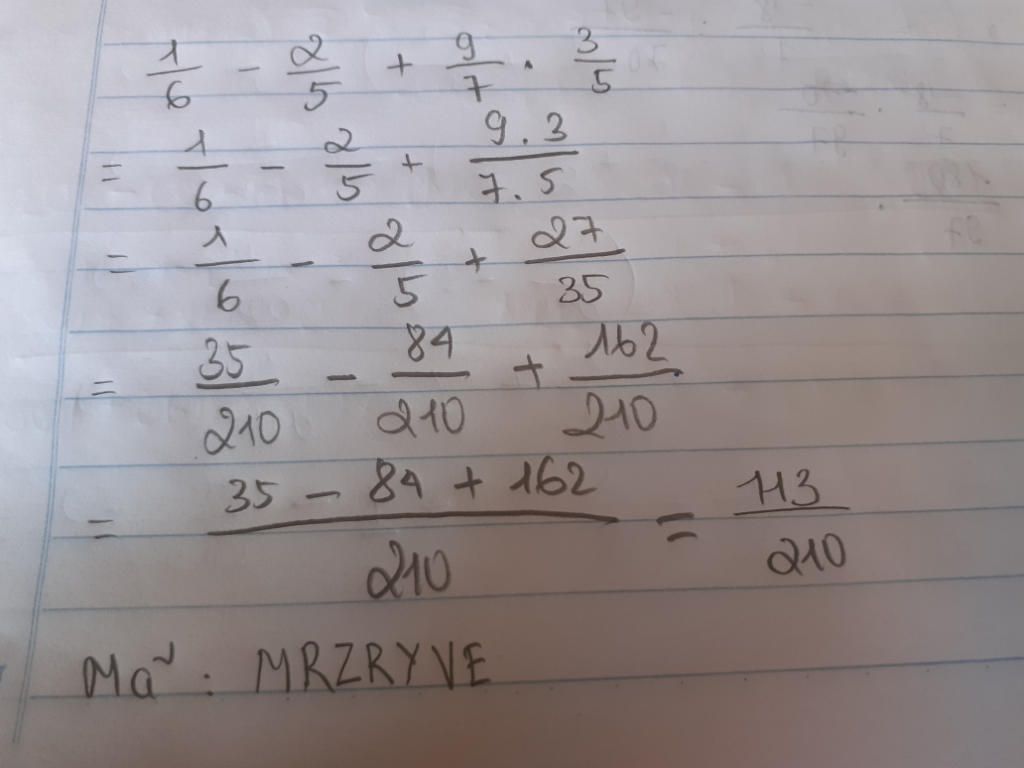 1/6 - 2/5 + 9/7 . 3/5
= 1/6 - 2/5 + 9.3/7.5
= 1/6 - 2/5 + 27/35
= 35/210 - 84/210 + 162/210
= 35 - 84 + 162/210 = 113/210
Mã : MRZRYVE